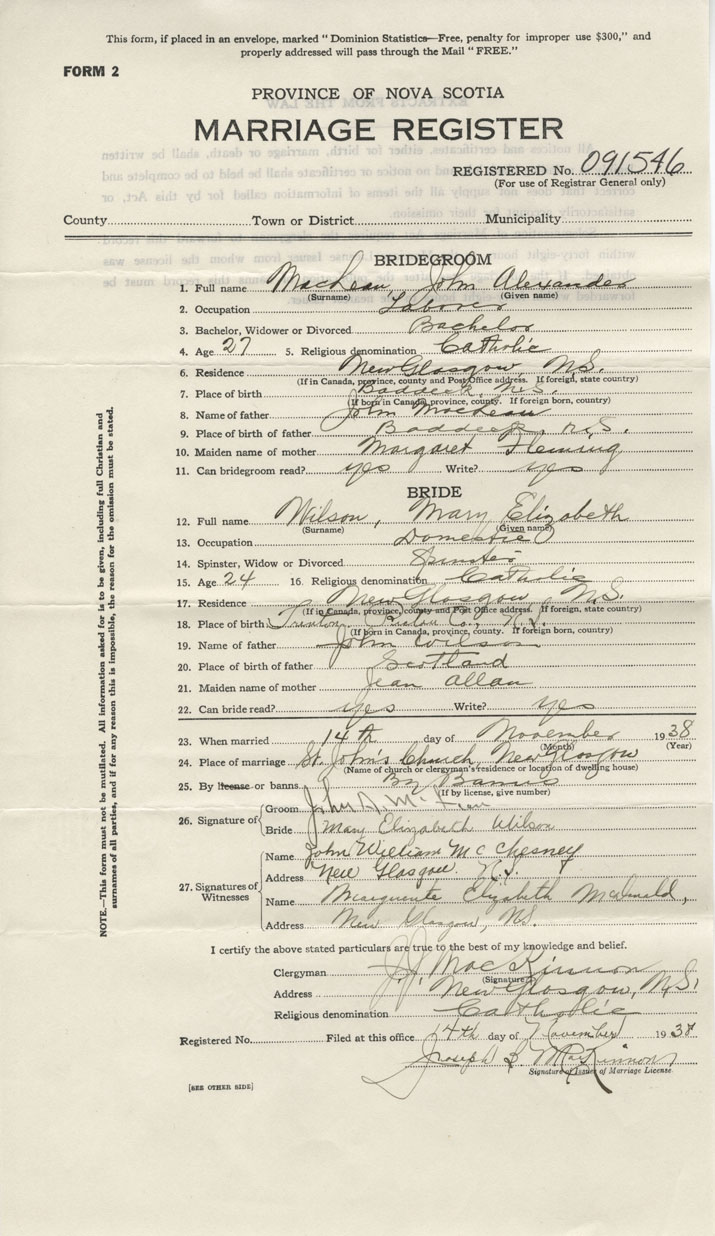 This form, if placed in an envelope, marked "Dominion Statistics—Free, penalty for improper use $300," and
properly addressed will pass through the Mail "FREE."
FORM 2
PROVINCE OF NOVA SCOTIA
MARRIAGE REGISTER
REGISTERED No. 091546
(For use of Registrar General only)
County Town or District Municipality
BRIDEGROOM
1. Full name MacLean, John Alexander
(Surname) (Given name)
2. Occupation Laborer
3. Bachelor, Widower or Divorced Bachelor
4. Age 27 5. Religious denomination Catholic
6. Residence New Glasgow, N.S.
(If in Canada, province, county and Post Office address. If foreign, state country)
7. Place of birth Baddeck, N.S.
(If born in Canada, province, county. If foreign born, country)
8. Name of father John MacLean
9. Place of birth of father Baddeck, N.S.
10. Maiden name of mother Margaret Fleming
11. Can bridegroom read? yes Write? yes
BRIDE
12. Full name Wilson, Mary Elizabeth
(Surname) (Given name)
13. Occupation Domestic
14. Spinster, Widow or Divorced Spinster
15. Age 24 16. Religious denomination Catholic
17. Residence New Glasgow, N.S.
(If in Canada, province, county and Post Office address. If foreign, state country)
18. Place of birth Trenton, Pictou Co., N.S.
(If born in Canada, province, county. If foreign born, country)
19. Name of father John Wilson
20. Place of birth of father Scotland
21. Maiden name of mother Jean Allan
22. Can bride read? yes Write? yes
23. When married 14th day of November 1938
(Month) (Year)
24. Place of marriage St. John's Church, New Glasgow
(Name of church or clergyman's residence or location of dwelling house)
25. By license or banns By Banns
(If by license, give number)
26. Signature of Groom John A.
Bride Mary Elizabeth Wilson
27. Signatures of Witnesses
Name John William McChesney
Address New Glasgow. N.S.
Name Marguerite Elizabeth McDonald,
Address New Glasgow, N.S.
I certify the above stated particulars are true to the best of my knowledge and belief.
Clergyman J. J. MacKinnon
(Signature)
Address New Glasgow, N.S.
Religious denomination Catholic
Registered No. Filed at this office 14th day of November 1938
Joseph B. MacKinnon
Signature of Issuer of Marriage License.
[SEE OTHER SIDE]
NOTE.—This form must not be mutilated. All information asked for is to be given, including full Christian and
surnames of all parties, and if for any reason this is impossible, the reason for the omission must be stated.